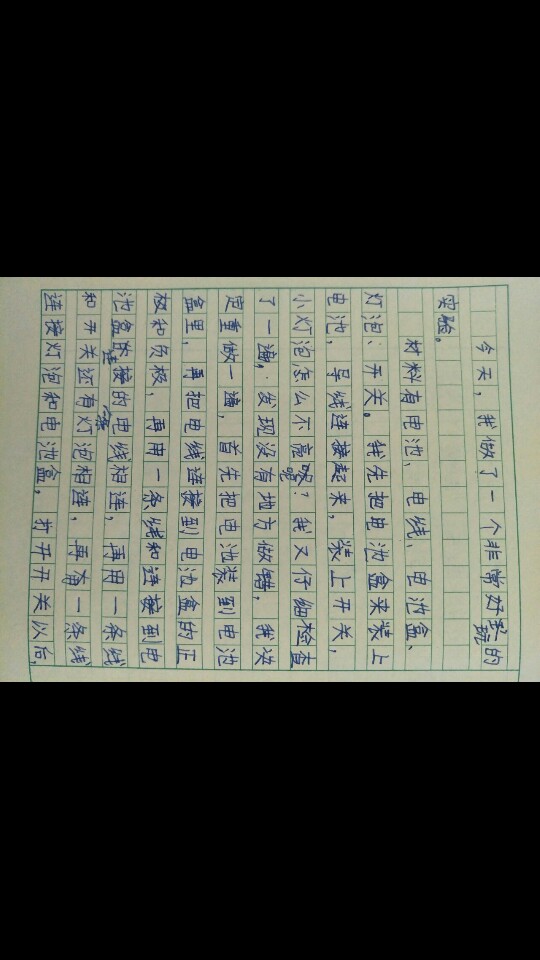 今天，我做了一个非常好玩的
实验。
材料有电池、电线、电池盒、
灯泡、开关。我先把电池盒来装上
电池，导线连接起来，装上开关，
小灯泡怎么不亮呢？我又仔细检查
了一遍，发现没有地方做错，我决
定重做一遍，首先把电池装到电池
盒里，再把电线连接到电池盒的正
极和负极，再用一条线和连接到电
池盒的连接的那条电线相连，再用一条线
和开关还有灯泡相连，再有一条线
连接灯泡和电池盒，打开开关以后，